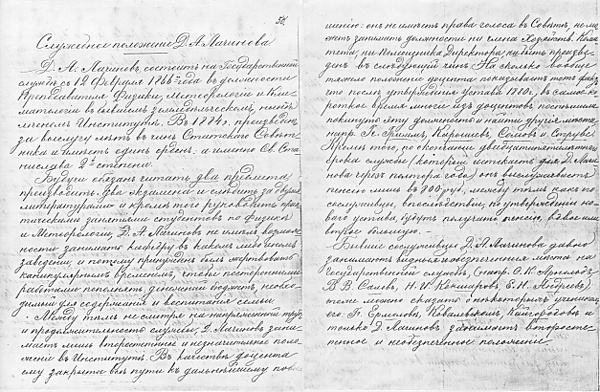 38.
Служебное положенiе Д. А. Лачинова
Д. А. Лачиновъ состоитъ на Государственной
службѣ съ 12 Февраля 1866 года въ должности
Преподавателя Физики, Метеорологiи и Кли-
матологiи въ бывшемъ Земледѣльческомъ, нынѣ
Лѣсномъ Институтѣ. Въ 1874 г. произведенъ
за выслугу лѣтъ въ чинъ Статскаго Совѣт-
ника и имѣетъ одинъ орденъ, а именно Св. Ста-
нислава 2й степени.
Будучи обязанъ читать два предмета
производить два экзамена и слѣдить за двумя
литературами и кромѣ того руководить прак-
тическими занятiями студентовъ по Физикѣ
и Метеорологiи, Д. А. Лачиновъ не имѣлъ возмож-
ности занимать кафедру въ какомъ либо иномъ
заведенiи и потому принужденъ былъ жертвовать
каникулярнымъ временемъ, чтобы посторонними
работами пополнять домашнiй бюджетъ, необхо-
димый для содержанiя и воспитанiя семьи.
Между тѣмъ не смотря на напряженный трудъ
и продолжительность службы, Д. Лачиновъ зани-
маетъ лишь второстепенное и незначительное поло-
женiе въ Институтѣ. Въ качествѣ доцента
ему закрыты всѣ пути къ дальнѣйшему повы-
шенiю: онъ не имѣетъ права голоса въ Совѣтѣ, не мо-
жетъ занимать должности ни члена Хозяйств. Коми-
тета, ни Помощника Директора, ни быть произве-
денъ въ слѣдующiй чинъ. На сколько вообще
тяжело положенiе доцента показываетъ тотъ фактъ,
что послѣ утвержденiя Устава 1880 г., въ самое ко-
роткое время многiе изъ доцентовъ поспѣшили
покинуть эту должность и найти другiя мѣста,
напр. гг. Кирпичевъ, Сомовъ и Струве.
Кромѣ того, по окончанiи двадцатипятилѣтняго
срока службы (который истекаетъ для Д. Лачи-
нова черезъ полтора года) онъ выслуживаетъ
пенсiю лишь въ 900 руб., между тѣмъ какъ его
сослуживцы, впослѣдствiи, по утвержденiи но-
ваго устава, будутъ получать пенсiю, вдвое или
втрое большую.
Бывшiе сослуживцы Д. А. Лачинова давно
занимаютъ видныя и обезпеченныя мѣста на
государственной службѣ, (напр. О. К. Арнольдъ,
Н. И. Кокшаровъ, Е. Н. Андреевъ)
тоже можно сказать о нѣкоторыхъ ученикахъ
его: гг. Ермоловъ, Ковалевскомъ, Кайгородовъ и
только Д. Лачиновъ занимаетъ второсте-
пенное и необезпеченное положенiе.